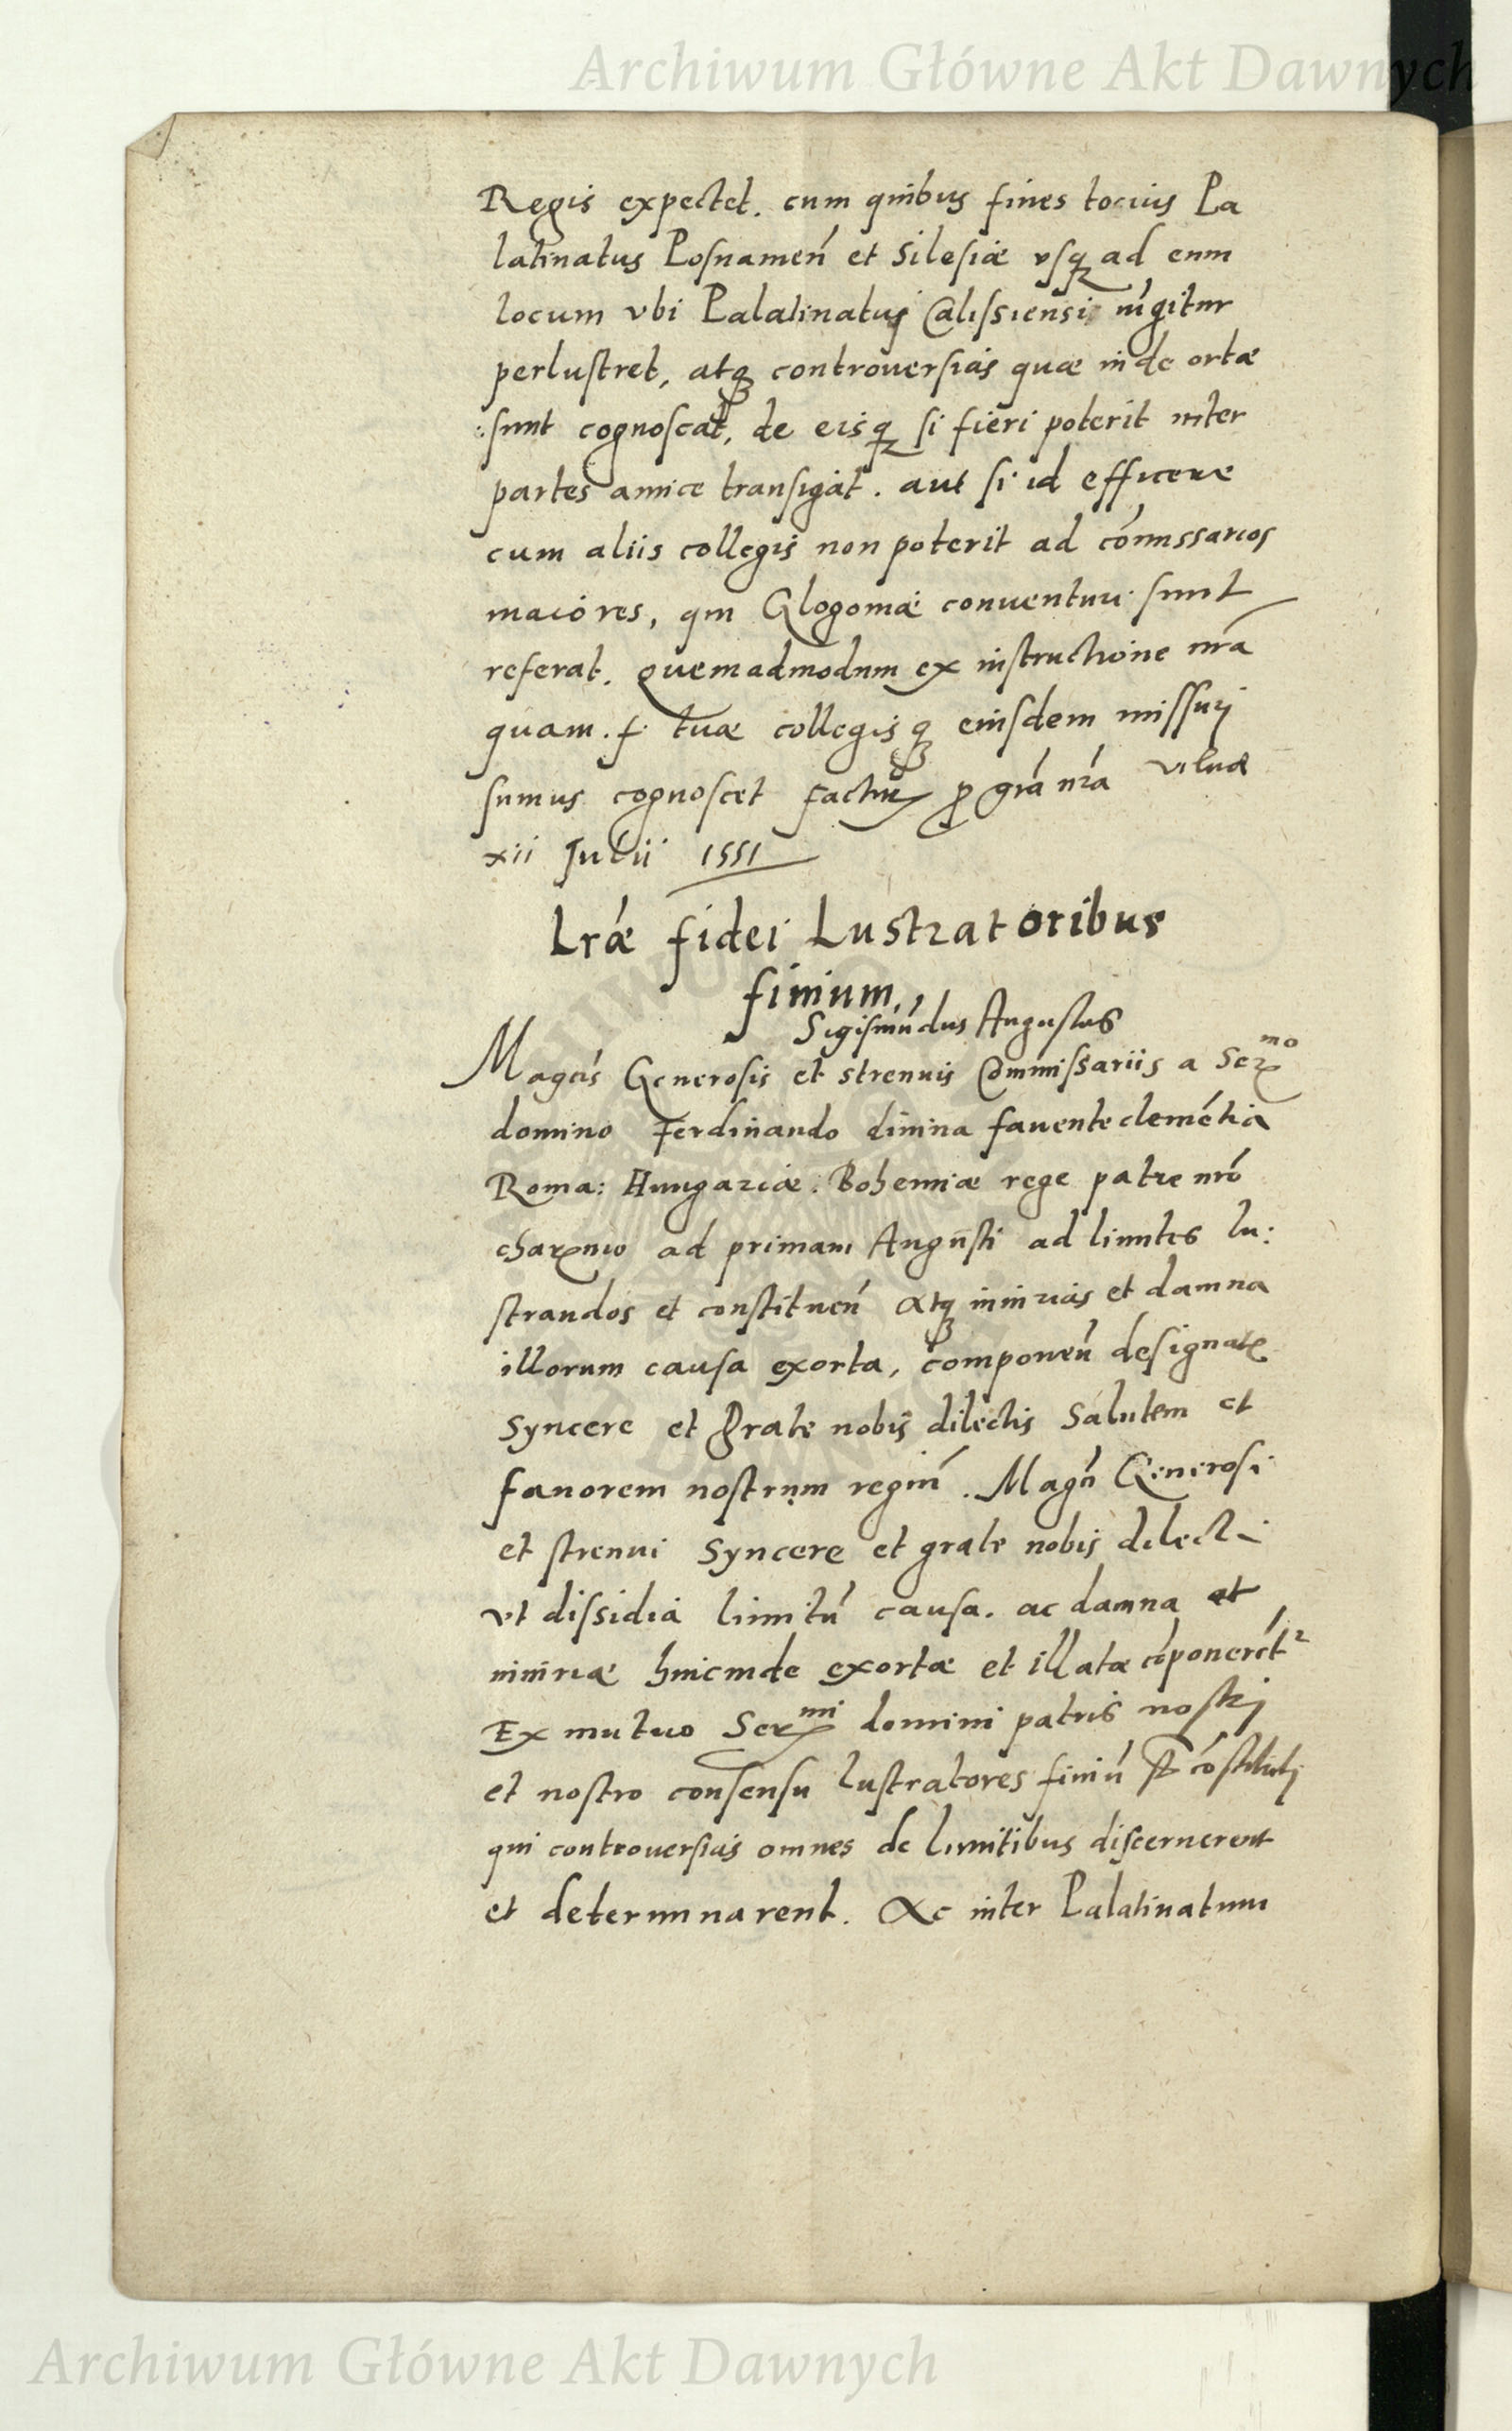 Archiwum Główne Akt Dawnych
Regis expectet. cum quibus fines tocius Pa
latinatus Posnamen̄ et Silesiæ vsq̧ ad eum
locum vbi Palatinatus Calissiensi iūgitur
perlustret, atq̧ controuersias quæ inde ortæ
sunt cognoscat, de eisq̧ si fieri poterit inter
partes amice transigat. aut si id efficere
cum aliis collegis non poterit ad cōmissarios
maiores, qui Glogouiæ conuenturi sunt
referat. quemadmodum ex instructione nr̄a
quam. f. tuæ collegisq̧ eiusdem missuri
sumus cognoscet factur̄ ꝓ gr̄a nr̄a vilnæ
xii Julii 1551
Lr̄æ fidei Lustratoribus
finium.
Sigismūdus Augustus
Magcīs Generosis et strenuis Commissariis a Sermo
domino Ferdinando diuina fauente clemētia
Roma: Hungariæ. Bohemiæ rege patre nr̄o
charmo ad primam Augusti ad limites lu:
strandos et constituen̄ atq̧ iniurias et damna
illorum causa exorta, componen̄ designatꝭ
Syncere et grate nobis dilectis Salutem et
fauorem nostrum regiū. Magcī Generosi
et strenui Syncere et grate nobis dilecti
vt dissidia limitū causa. ac damna et
iniuriæ hincinde exortæ et illatæ cōponerēt2
Ex mutuo Sermi domini patris nostri
et nostro consensu lustratores finiū st̄ cōstituti
qui controuersias omnes de limitibus discernerent
et determinarent. Ac inter Palatinatum
Archiwum Główne Akt Dawnych